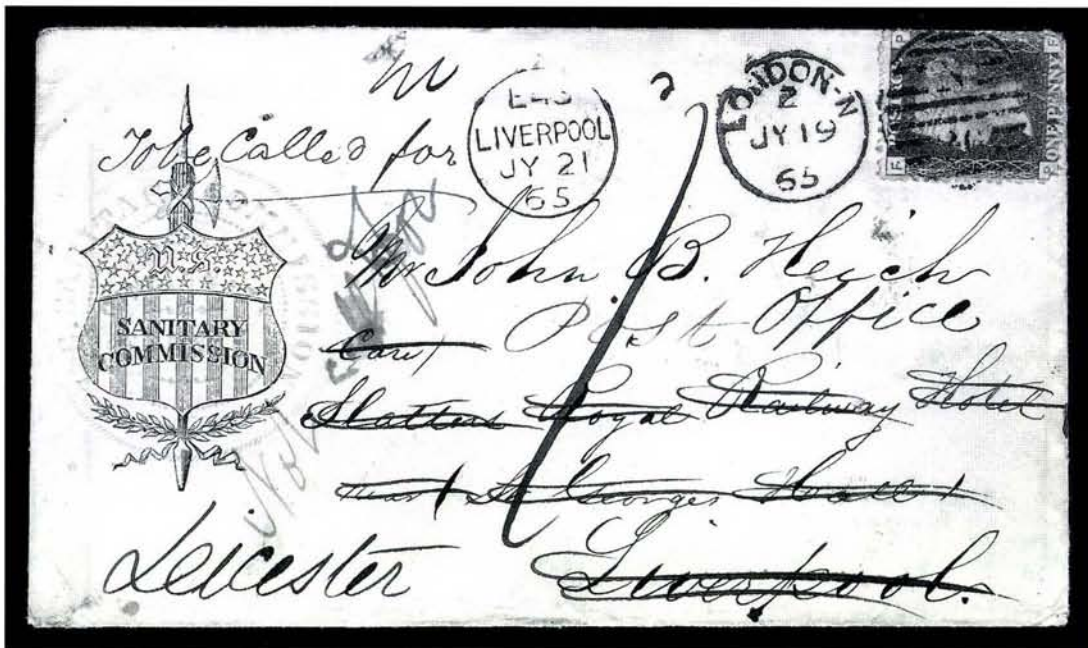 To be Called for
E43
LIVERPOOL
JY 21
65
LONDON-N
Z
JY 19
65
ONE PENNY
U.S.
SANITARY
COMMISSION
Mr John. B. Heich
Post Office
Care
Royal Railway Hotel
near St Georges Hall
Leicester
Liverpool.